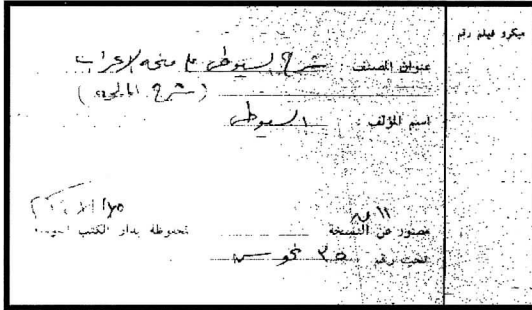 ميكرو فيلم رقم
عنوان المصنف : شرح السيوطي على ملحة الاعراب
( شرح الملحة )
اسم المؤلف : السيوطي
مصور عن النسخة محفوظة بدار الكتب
تحت رقم ٣٥ نحو س